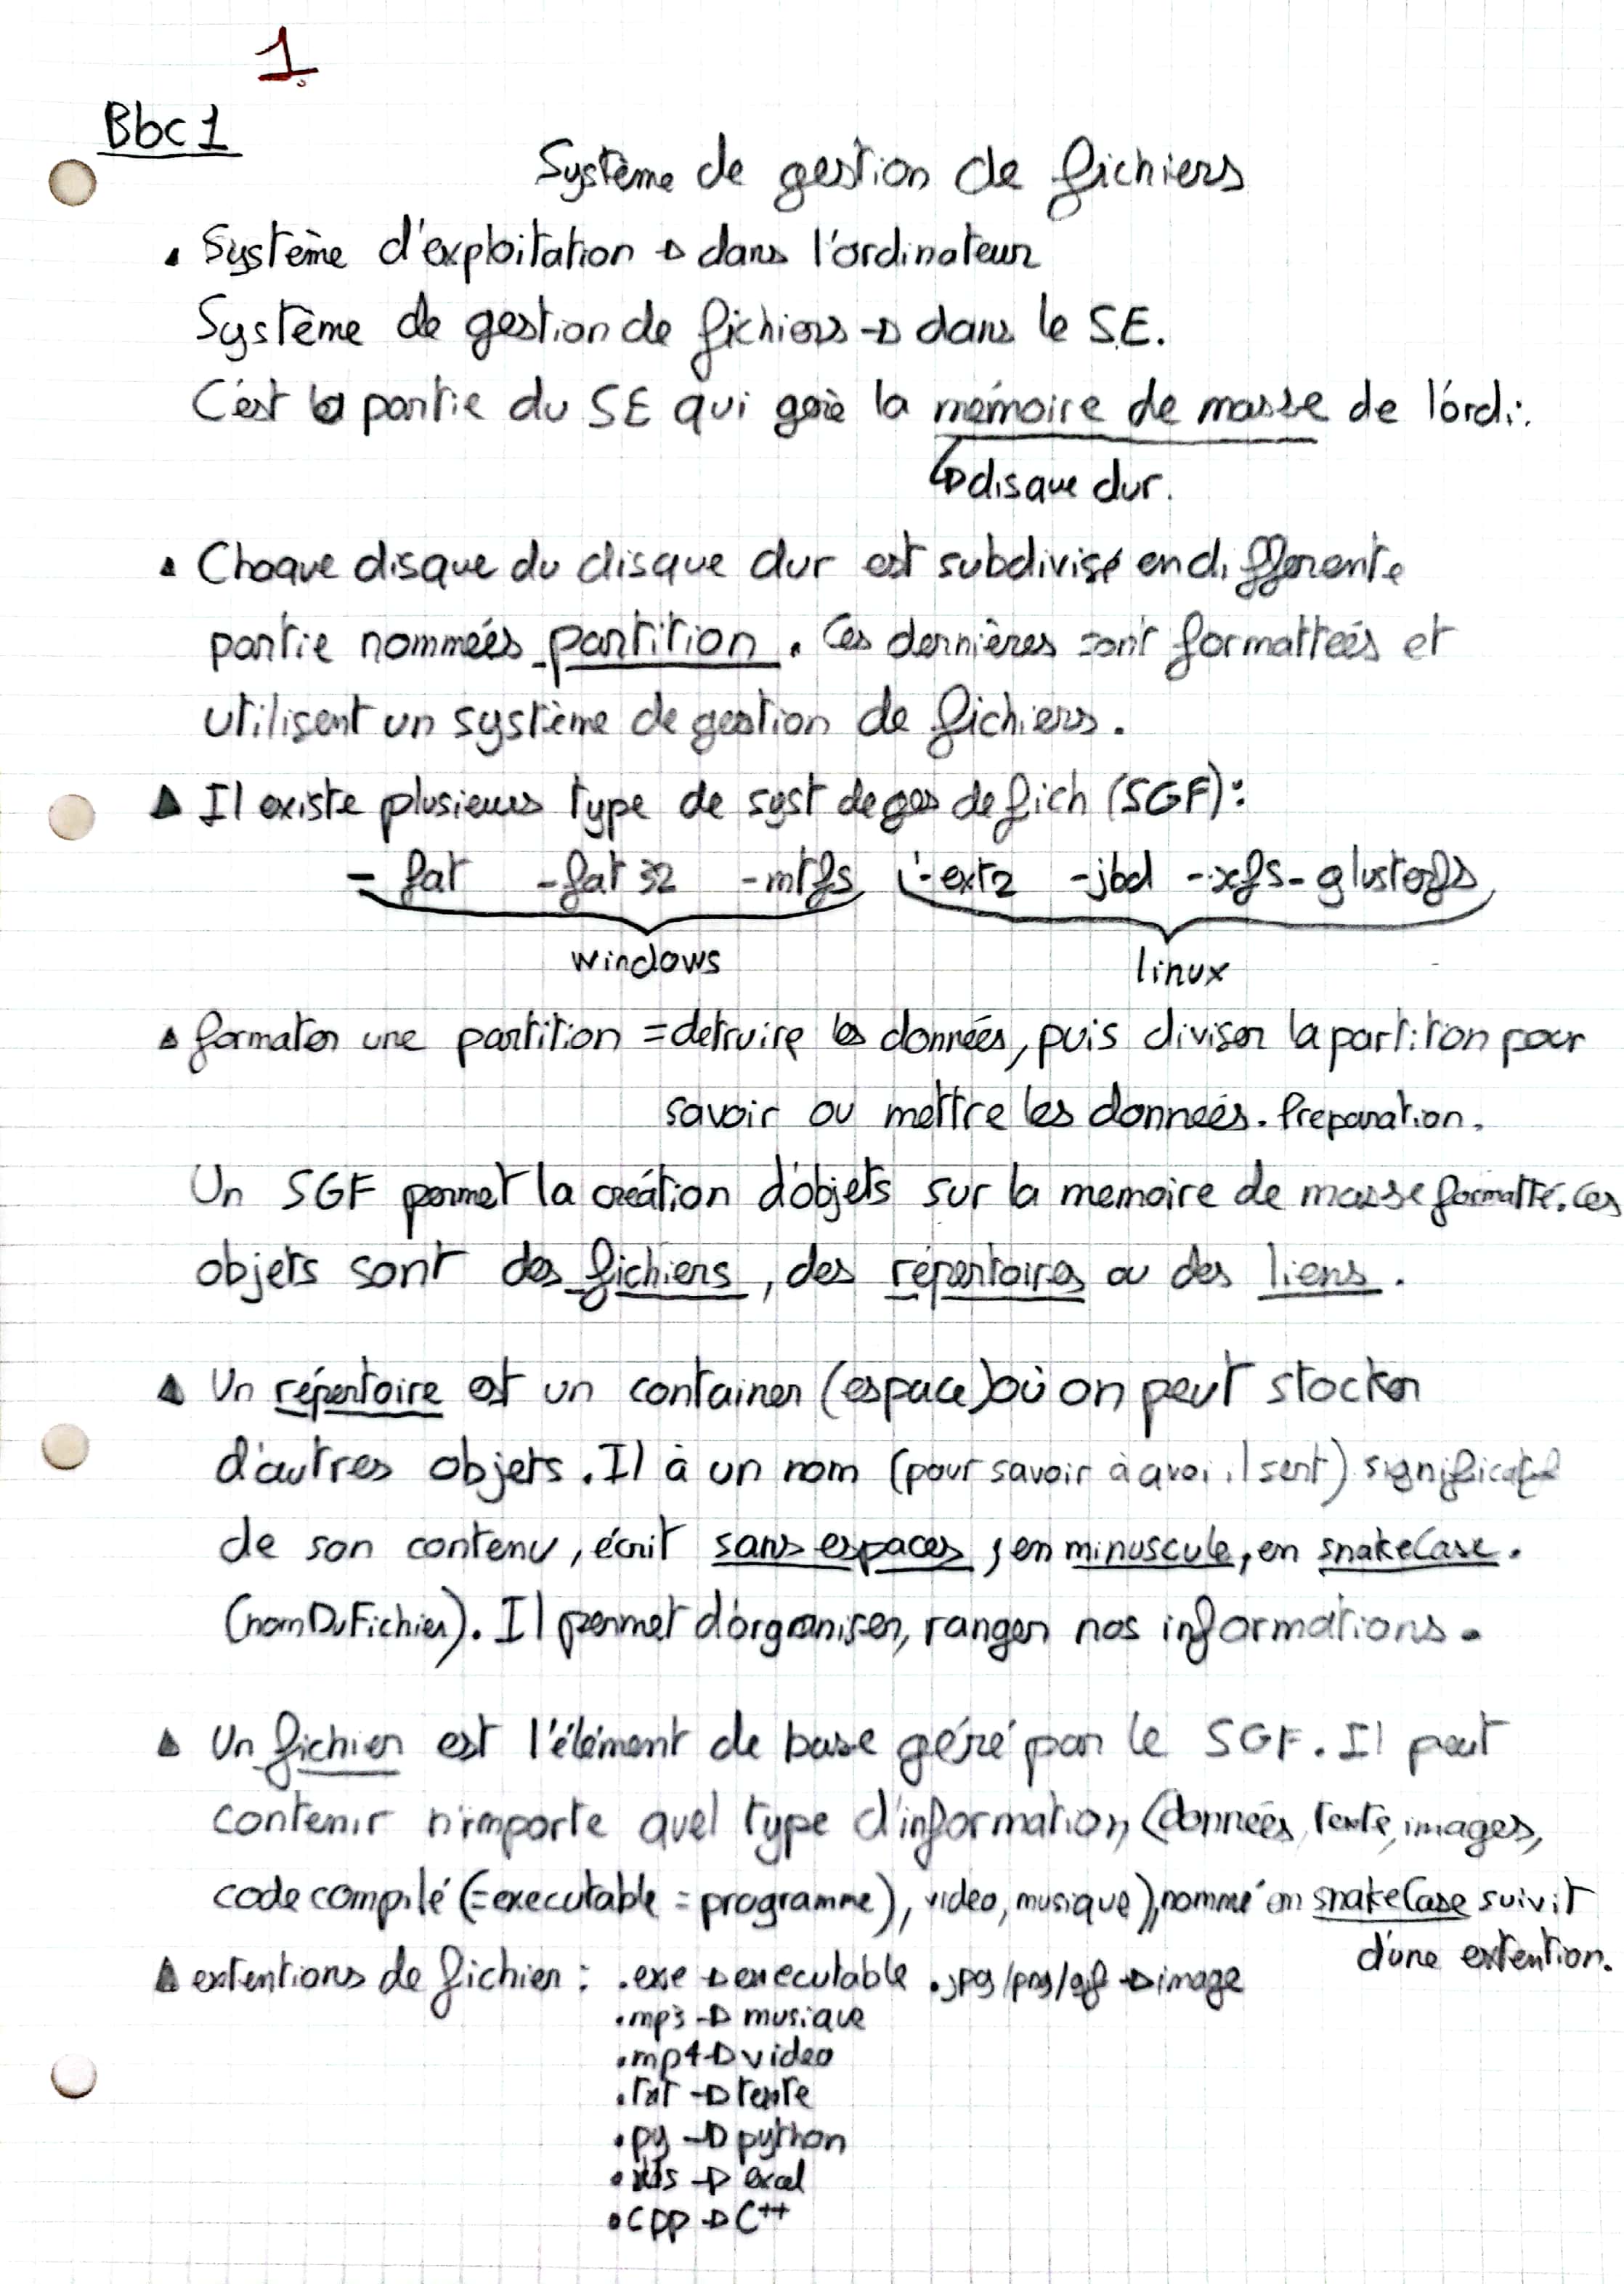 1.
Bbc1
Système de gestion de fichiers
Système d'exploitation → dans l'ordinateur
Système de gestion de fichiers → dans le S.E.
C'est la partie du SE qui gère la mémoire de masse de l'ordi.
↳ disque dur.
Chaque disque du disque dur est subdivisé en différente
partie nommées partition. Ces dernières sont formattées et
utilisent un système de gestion de fichiers.
Il existe plusieurs type de syst de ges de fich (SGF):
- fat - fat 32 - mtfs - ext2 - jbd - xfs - glusterfs
windows linux
formater une partition = detruire les données, puis diviser la partition pour
savoir ou mettre les données. Preparation.
Un SGF permet la création d'objets sur la memoire de masse formatté. Ces
objets sont des fichiers, des répertoires ou des liens.
Un répertoire est un container (espace) où on peut stocker
d'autres objets. Il à un nom (pour savoir à quoi il sert) significatif
de son contenu, écrit sans espaces, en minuscule, en snakeCase.
(nomDuFichier). Il permet d'organiser, ranger nos informations.
Un fichier est l'élément de base géré par le SGF. Il peut
contenir n'importe quel type d'information (données, texte, images,
code compilé (=executable = programme), video, musique), nommé en snakeCase suivit
d'une extention.
extentions de fichier : .exe → executable .jpg/png/gif → image
.mp3 → musique
.mp4 → video
.txt → texte
.py → python
.xls → excel
.cpp → C++